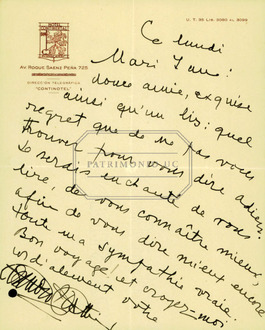 U. T. 35 Lib. 3080 al 3089
AV. ROQUE SAENZ PEÑA 725
DIRECCION TELEGRAFICA
"CONTINOTEL"
Ce lundi
douce amie, exquise
ainsi qu'un lis: quel
regret que de ne pas vous
trouver pour vous dire adieu.
Je serais enchanté de vous
lire, de vous connaître mieux,
afin de vous dire mieux encore
toute ma sympathie vraie.
Bon voyage! et croyez-moi
cordialement vôtre
PATRIMONIO UC